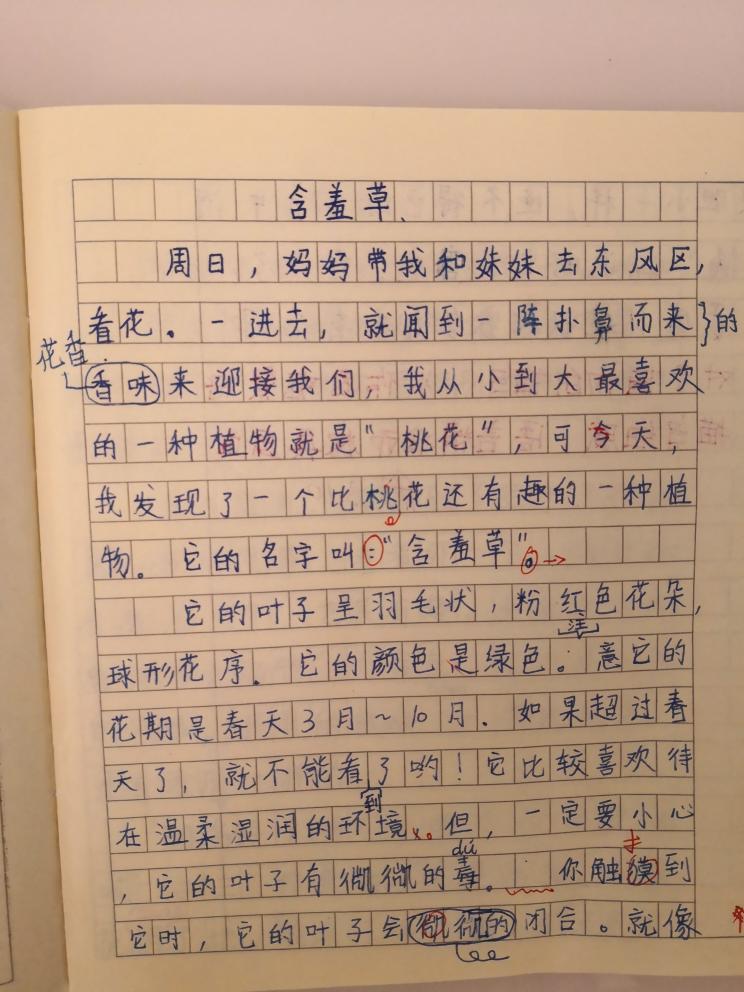 含羞草
周日，妈妈带我和妹妹去东风区，
看花。一进去，就闻到一阵扑鼻而来}的
花香
香味来迎接我们，我从小到大最喜欢
的一种植物就是“桃花”，可今天，
我发现了一个比桃花还有趣的一种植
物。它的名字叫：“含羞草”。
它的叶子呈羽毛状，粉红色花朵，
球形花序。它的颜色是绿色。意它的
注
花期是春天3月~10月．如果超过春
天了，就不能看了哟！它比较喜欢待
到
在温柔湿润的环境。但，一定要小心
dú
，它的叶子有微微的毒。你触摸到
它时，它的叶子会微微的闭合。就像